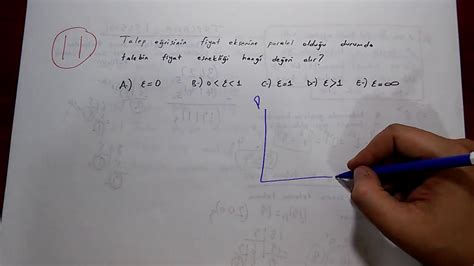 11
Talep eğrisinin fiyat eksenine paralel olduğu durumda
talebin fiyat esnekliği hangi değeri alır?
A-) ε=0 B-) 0<ε<1 C-) ε=1 D-) ε>1 E-) ε=∞
P